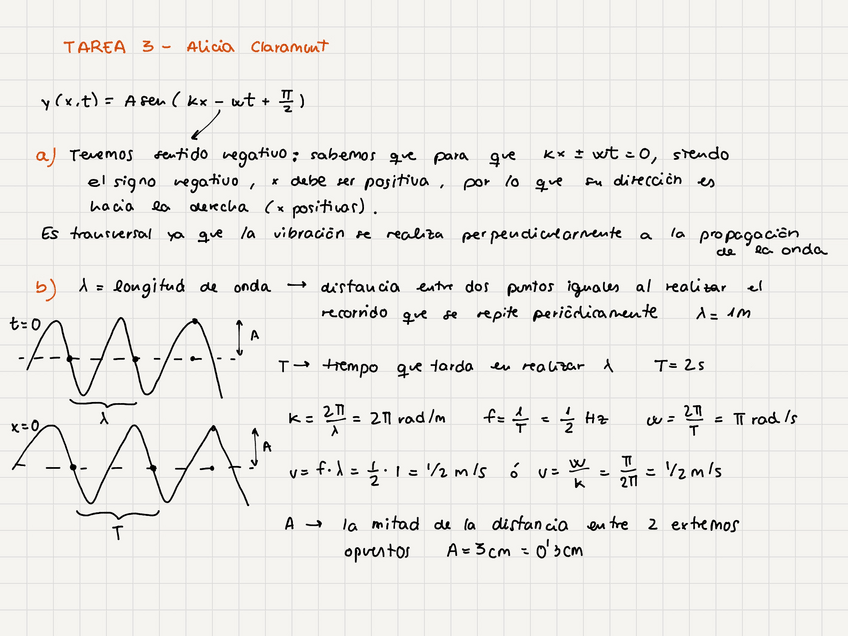 TAREA 3 - Alicia Claramunt
y(x,t) = A sen ( kx - wt + π/2 )
a) Tenemos sentido negativo; sabemos que para que kx ± wt = 0, siendo
el signo negativo, x debe ser positiva, por lo que su dirección es
hacia la derecha (x positivas).
Es transversal ya que la vibración se realiza perpendicularmente a la propagación
de la onda
b) λ = longitud de onda → distancia entre dos puntos iguales al realizar el
recorrido que se repite periódicamente λ = 1m
t=0
A
λ
T → tiempo que tarda en realizar λ T = 2s
k = 2π/λ = 2π rad/m f = 1/T = 1/2 Hz w = 2π/T = π rad/s
x=0
A
T
v = f · λ = 1/2 · 1 = 1/2 m/s ó v = w/k = π/2π = 1/2 m/s
A → la mitad de la distancia entre 2 extremos
opuestos A = 3cm = 0'3cm